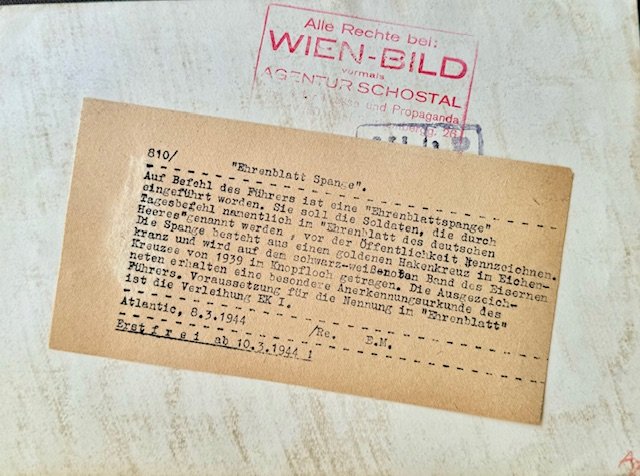 Alle Rechte bei:
WIEN-BILD
vormals
AGENTUR SCHOSTAL
und Propaganda
810/
"Ehrenblatt Spange".
Auf Befehl des Führers ist eine "Ehrenblattspange"
eingeführt worden. Sie soll die Soldaten, die durch
Tagesbefehl namentlich im "Ehrenblatt des deutschen
Heeres" genannt werden, vor der Öffentlichkeit kennzeichnen.
Die Spange besteht aus einem goldenen Hakenkreuz in Eichen-
kranz und wird auf dem schwarz-weißen Band des Eisernen
Kreuzes von 1939 im Knopfloch getragen. Die Ausgezeich-
neten erhalten eine besondere Anerkennungsurkunde des
Führers. Voraussetzung für die Nennung im "Ehrenblatt"
ist die Verleihung EK I.
Atlantic, 8.3.1944 /Re. E.M.
Erst frei ab 10.3.1944 !